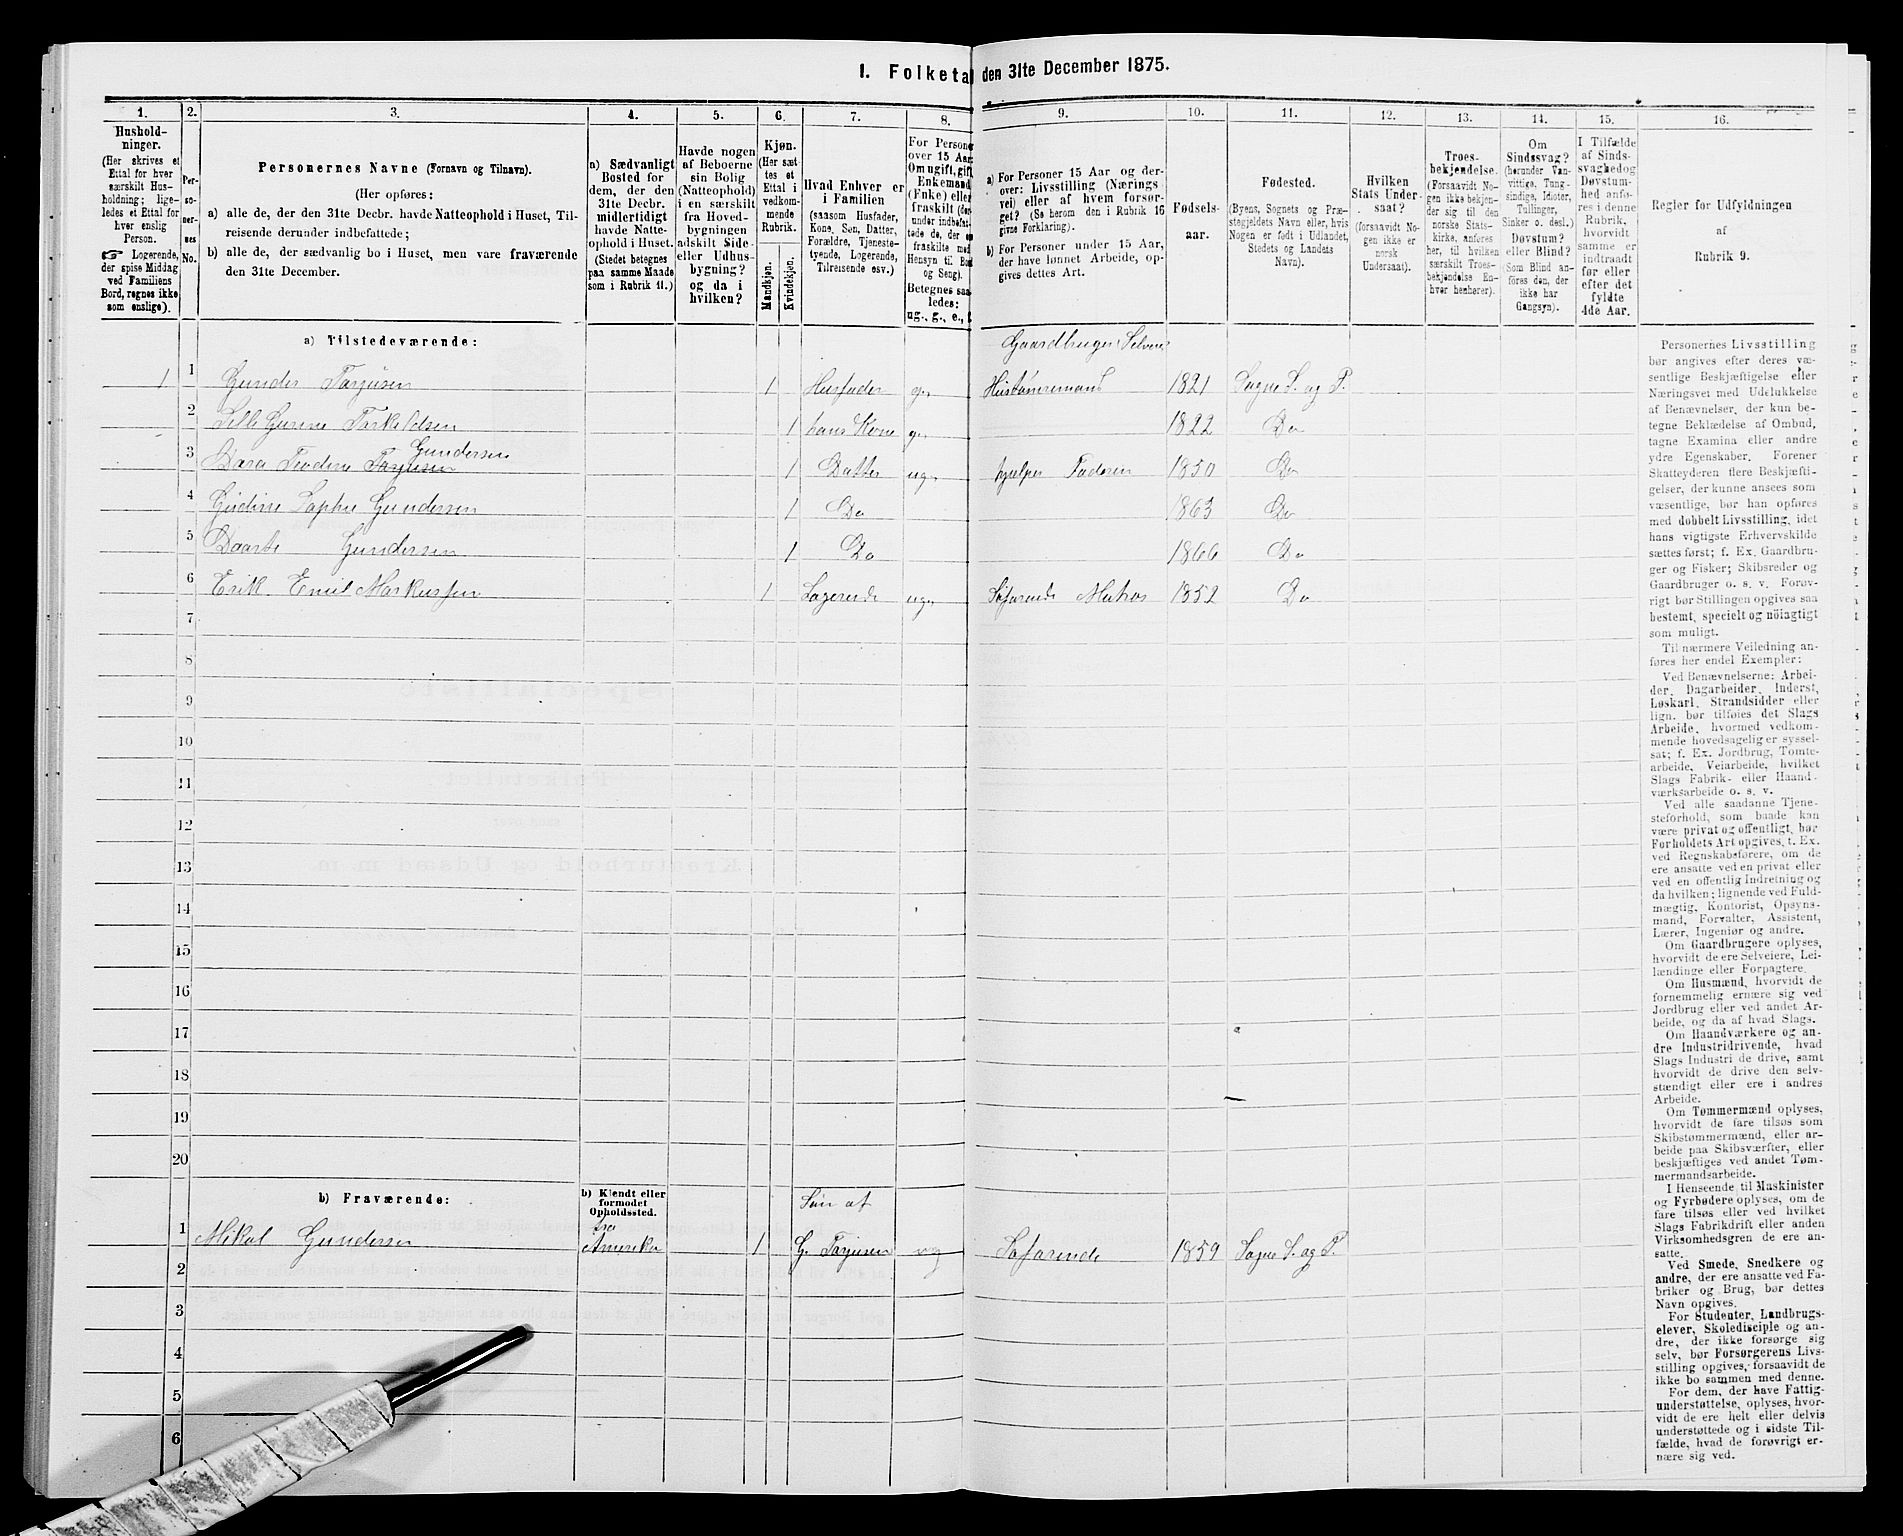 1. Folketal den 31te December 1875.
1.
Hushold-
ninger.
(Her skrives et
Ettal for hver
særskilt Hus-
holdning; lige-
ledes et Ettal for
hver enslig
Person.
☞ Logerende,
der spise Middag
ved Familiens
Bord, regnes ikke
som enslige).
2.
Per-
so-
ner-
nes
No.
3.
Personernes Navne (Fornavn og Tilnavn).
(Her opføres:
a) alle de, der den 31te Decbr. havde Natteophold i Huset, Til-
reisende derunder indbefattede;
b) alle de, der sædvanlig bo i Huset, men vare fraværende
den 31te December.
4.
a) Sædvanligt
Bosted for
dem, der den
31te Decbr.
midlertidigt
havde Natte-
ophold i Huset.
(Stedet betegnes
paa samme Maade
som i Rubrik 11.)
5.
Havde nogen
af Beboerne
sin Bolig
(Natteophold)
i en særskilt
fra Hoved-
bygningen
adskilt Side-
eller Udhus-
bygning?
og da i
hvilken?
6.
Kjøn.
(Her sæt
tes et
Ettal i
vedkom-
mende
Rubrik.
Mandkjøn.
Kvindekjøn.
7.
Hvad Enhver er
i Familien
(saasom Husfader,
Kone, Søn, Datter,
Forældre, Tjeneste-
tyende, Logerende,
Tilreisende osv.)
8.
For Persone
over 15 Aar
Om ugift, gift
Enkemand
(Enke) eller
fraskilt (der
under indbefat
tede de, der e
fraskilte med
Hensyn til Bo
og Seng).
Betegnes saa
ledes:
ug., g., e., f
9.
a) For Personer 15 Aar og der-
over: Livsstilling (Nærings
vei) eller af hvem forsør-
get? (Se herom den i Rubrik 16
givne Forklaring).
b) For Personer under 15 Aar,
der have lønnet Arbeide, op-
gives dettes Art.
10.
Fødsels-
aar.
11.
Fødested.
(Byens, Sognets og Præ-
stegjeldets Navn eller, hvis
Nogen er født i Udlandet,
Stedets og Landets
Navn).
12.
Hvilken
Stats Under-
saat?
(forsaavidt No-
gen ikke er
norsk
Undersaat).
13.
Troes-
bekjendelse.
(Forsaavidt No-
gen ikke bekjen-
der sig til den
norske Stats-
kirke, anføres
her, til hvilken
særskilt Troes-
bekjendelse En-
hver henhører).
14.
Om
Sindssvag?
(herunder Van-
vittige, Tung-
sindige, Idioter,
Tullinger,
Sinker o. desl.)
Døvstum?
eller Blind?
(Som Blind an-
føres den, der
ikke har
Gangsyn).
15.
I Tilfælde
af Sinds-
svaghed og
Døvstum-
hed anfø-
res i denne
Rubrik,
hvorvidt
samme er
indtraadt
før eller
efter det
fyldte
4de Aar.
16.
Regler for Udfyldningen
af
Rubrik 9.
a) Tilstedeværende:
Gaardbruger Selveier
1 1 Gunder Tarjusen 1 Husfader g. Hustømermand 1821 Sogne S. og P.
2 Silli Gurine Torkeldsen 1 hans Kone g. 1822 Do
Gundersen
3 Teodora Tarjusen 1 Datter ug. hjælper Faderen 1850 Do
4 Gudine Sophie Gundersen 1 Do 1863 Do
5 Gundersen 1 Do 1866 Do
6 Erik Emil Markussen 1 Logerende ug. Søfarende Matros 1852 Do
7
8
9
10
11
12
13
14
15
16
17
18
19
20
b) Fraværende:
b) Kjendt eller
formodet
Opholdssted.
Søn af
1 Mikal Gundersen Amerika 1 G. Tarjusen ug Søfarende 1859 Sogne S. og P.
2
3
4
5
6
Personernes Livsstilling
bør angives efter deres væ-
sentlige Beskjæftigelse eller
Næringsvei med Udelukkelse
af Benævnelser, der kun be-
tegne Beklædelse af Ombud,
tagne Examina eller andre
ydre Egenskaber. Forener
Skatteyderen flere Beskjæfti-
gelser, der kunne ansees som
væsentlige, bør han opføres
med dobbelt Livsstilling, idet
hans vigtigste Erhvervskilde
sættes først; f. Ex. Gaardbru-
ger og Fisker; Skibsreder og
Gaardbruger o. s. v. Forøv-
rigt bør Stillingen opgives saa
bestemt, specielt og nöiagtigt
som muligt.
Til nærmere Veiledning an-
føres her endel Exempler:
Ved Benævnelserne: Arbei-
der, Dagarbeider, Inderst,
Løskarl, Strandsidder eller
lign. bør tilføies det Slags
Arbeide, hvormed vedkom-
mende hovedsagelig er syssel-
sat; f. Ex. Jordbrug, Tomte-
arbeide, Veiarbeide, hvilket
Slags Fabrik- eller Haand-
værksarbeide o. s. v.
Ved alle saadanne Tjene-
steforhold, som baade kan
være privat og offentligt, bør
Forholdets Art opgives, t. Ex.
ved Regnskabsførere, om de
ere ansatte ved en privat eller
ved en offentlig Indretning og
da hvilken; lignende ved Fuld-
mægtig, Kontorist, Opsyns-
mand, Forvalter, Assistent,
Lærer, Ingeniør og andre.
Om Gaardbrugere oplyses,
hvorvidt de ere Selveiere, Lei-
lændinge eller Forpagtere.
Om Husmænd, hvorvidt de
fornemmelig ernære sig ved
Jordbrug eller ved andet Ar-
beide, og da af hvad Slags.
Om Haandværkere og an-
dre Industridrivende, hvad
Slags Industri de drive, samt
hvorvidt de drive den selv-
stændigt eller ere i andres
Arbeide.
Om Tømmermænd oplyses,
hvorvidt de fare tilsøs som
Skibstømmermænd, eller ar-
beide paa Skibsværfter, eller
beskjæftiges ved andet Tøm-
mermandsarbeide.
I Henseende til Maskinister
og Fyrbødere oplyses, om de
fare tilsøs eller ved hvilket
Slags Fabrikdrift eller anden
Virksomhedsgren de ere an-
satte.
Ved Smede, Snedkere og
andre, der ere ansatte ved Fa-
briker og Brug, bør dettes
Navn opgives.
For Studenter, Landbrugs-
elever, Skoledisciple og an-
dre, der ikke forsørge sig
selv, bør Forsørgerens Livs-
stilling opgives, forsaavidt de
ikke bo sammen med denne.
For dem, der have Fattig-
understøttelse, oplyses, hvor-
vidt de ere helt eller delvis
understøttede og i sidste Til-
fælde, hvad de forøvrigt er-
nære sig ved.